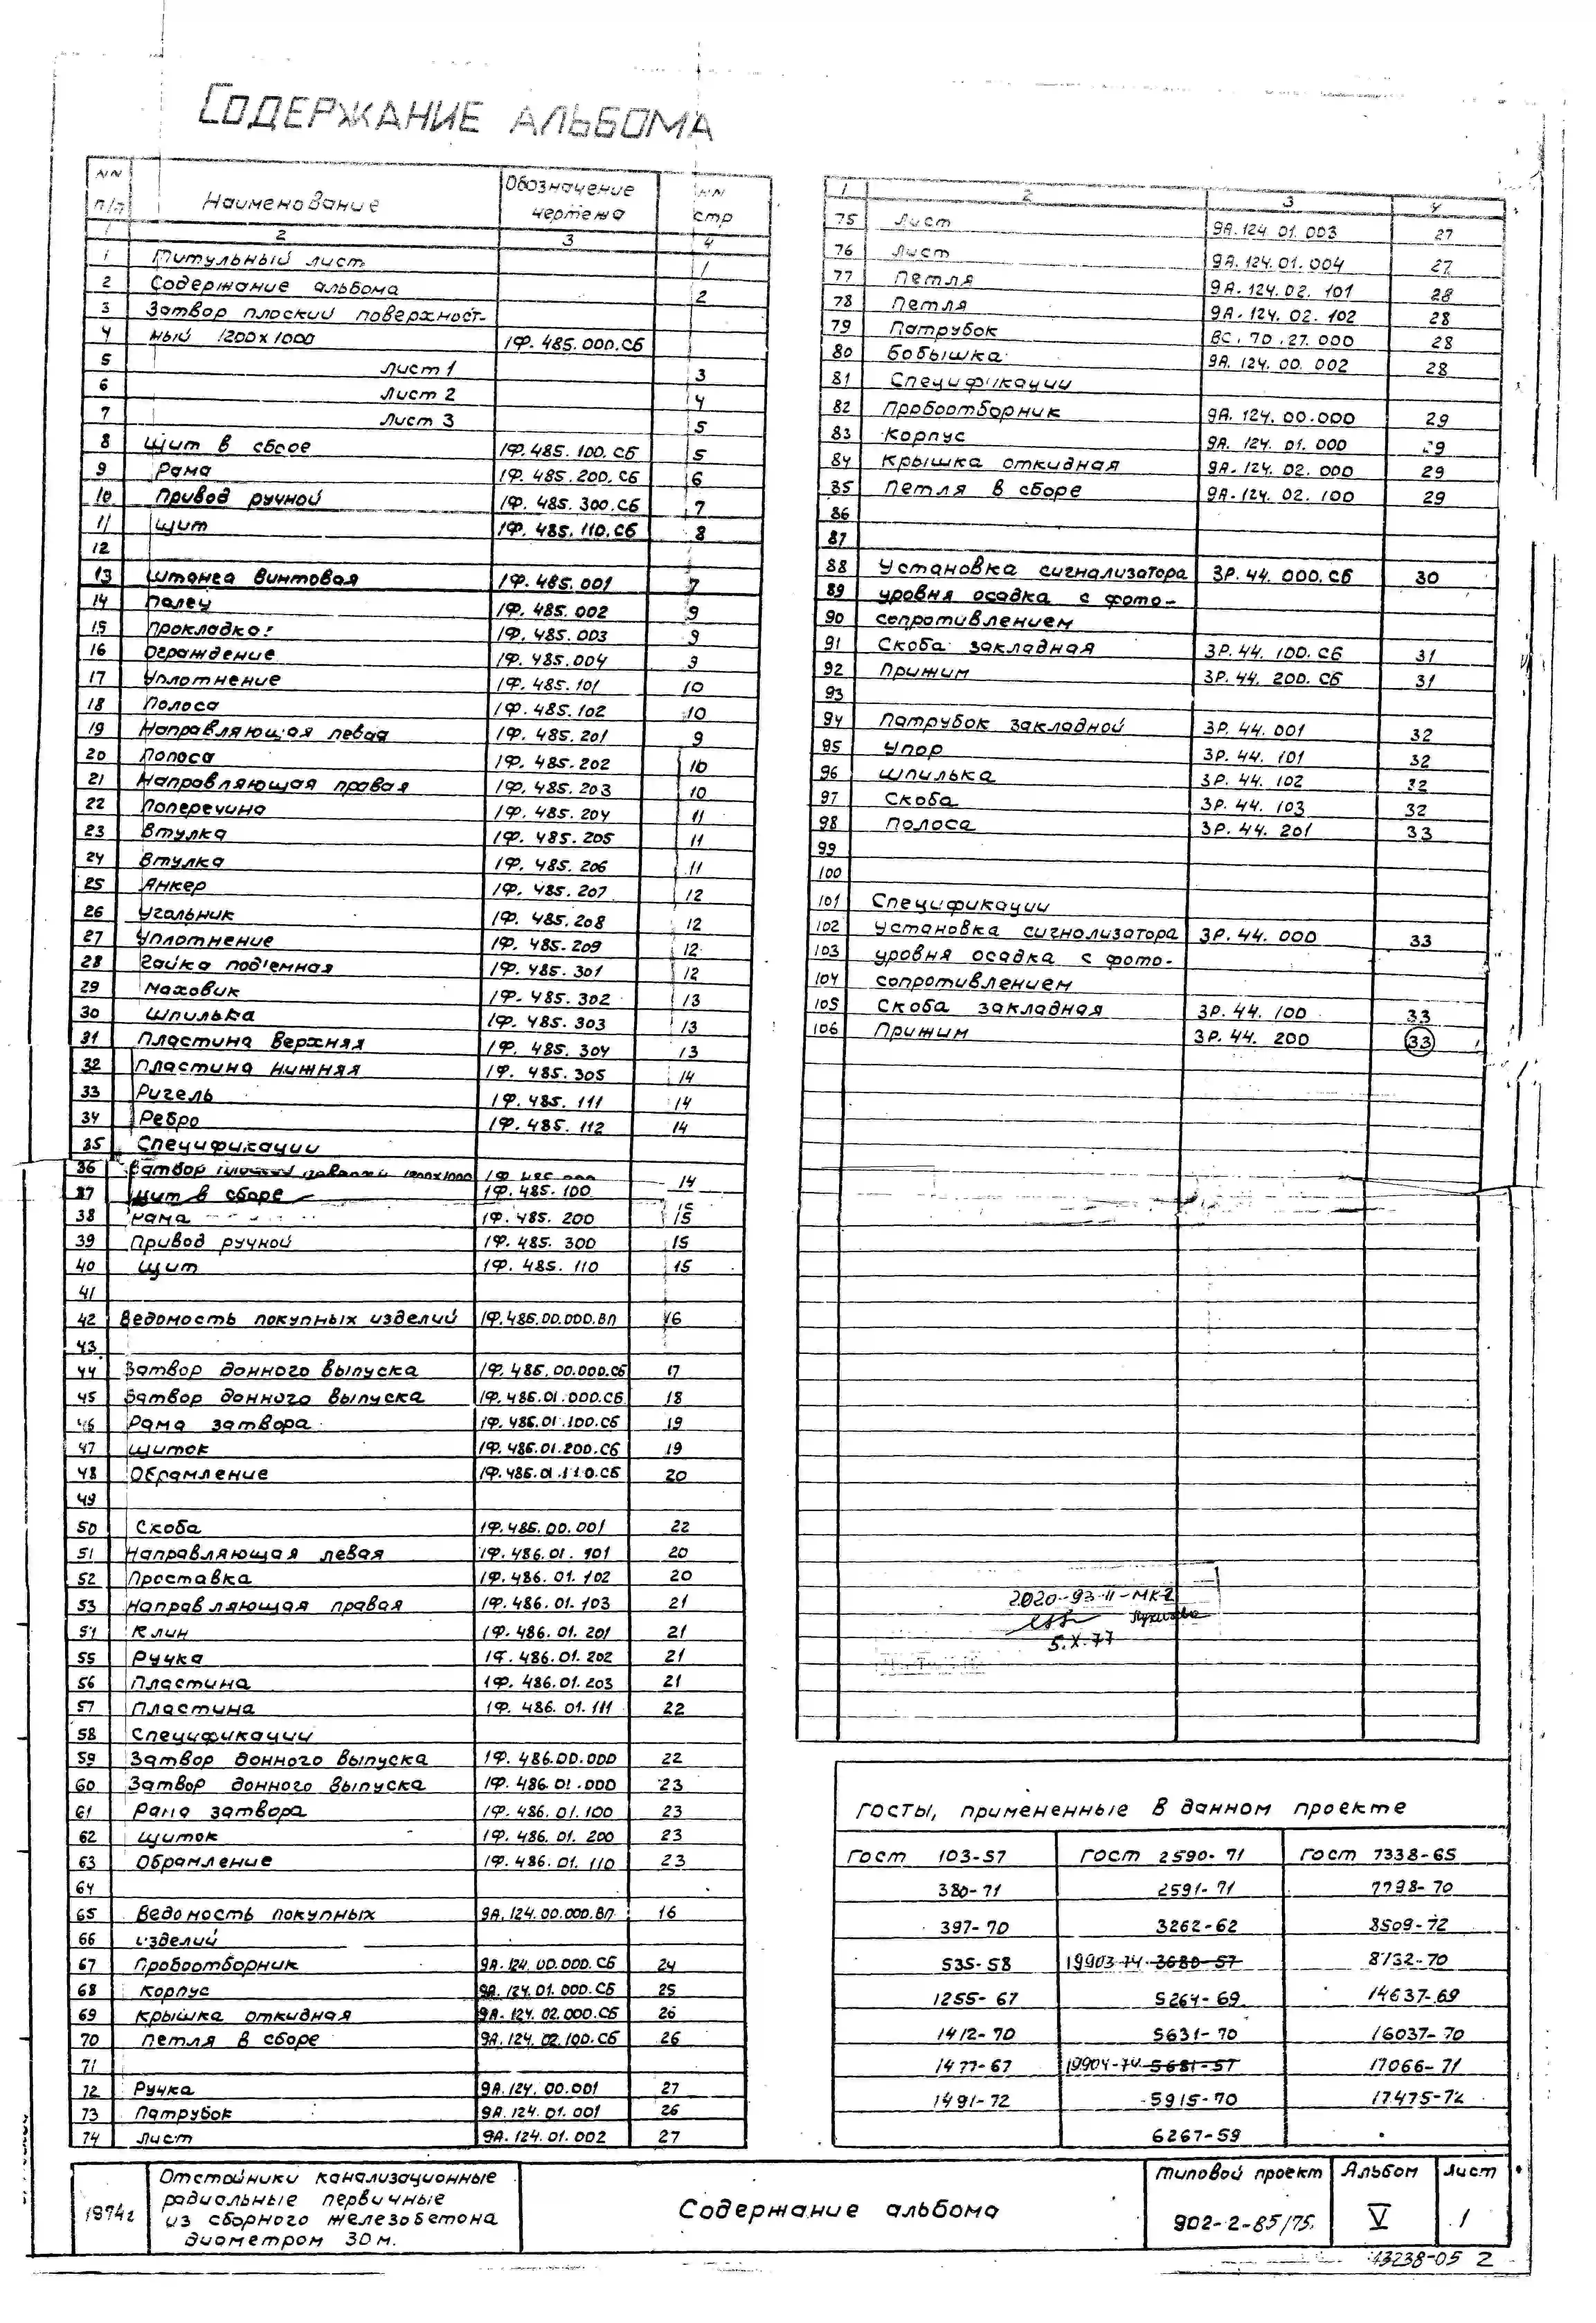 СОДЕРЖАНИЕ АЛЬБОМА
NN п/п Наименование Обозначение чертежа NN стр
1 2 3 4
1 Титульный лист 1
2 Содержание альбома 2
3 Затвор плоский поверхност-
4 ный 1200х1000 1Ф.485.000.СБ
5 Лист 1 3
6 Лист 2 4
7 Лист 3 5
8 Щит в сборе 1Ф.485.100.СБ 5
9 Рама 1Ф.485.200.СБ 6
10 Привод ручной 1Ф.485.300.СБ 7
11 Щит 1Ф.485.110.СБ 8
12
13 Штанга винтовая 1Ф.485.001 7
14 Палец 1Ф.485.002 9
15 Прокладка 1Ф.485.003 9
16 Ограждение 1Ф.485.004 9
17 Уплотнение 1Ф.485.101 10
18 Полоса 1Ф.485.102 10
19 Направляющая левая 1Ф.485.201 9
20 Полоса 1Ф.485.202 10
21 Направляющая правая 1Ф.485.203 10
22 Поперечина 1Ф.485.204 11
23 Втулка 1Ф.485.205 11
24 Втулка 1Ф.485.206 11
25 Анкер 1Ф.485.207 12
26 Угольник 1Ф.485.208 12
27 Уплотнение 1Ф.485.209 12
28 Гайка под'емная 1Ф.485.301 12
29 Маховик 1Ф.485.302 13
30 Шпилька 1Ф.485.303 13
31 Пластина верхняя 1Ф.485.304 13
32 Пластина нижняя 1Ф.485.305 14
33 Ригель 1Ф.485.111 14
34 Ребро 1Ф.485.112 14
35 Спецификации
36 Затвор 1200х1000 14
37 Щит в сборе 1Ф.485.100 15
38 Рама 1Ф.485.200 15
39 Привод ручной 1Ф.485.300 15
40 Щит 1Ф.485.110 15
41
42 Ведомость покупных изделий 1Ф.486.00.000.ВП 16
43
44 Затвор донного выпуска 1Ф.486.00.000.СБ 17
45 Затвор донного выпуска 1Ф.486.01.000.СБ 18
46 Рама затвора 1Ф.486.01.100.СБ 19
47 Щиток 1Ф.486.01.200.СБ 19
48 Обрамление 1Ф.486.01.110.СБ 20
49
50 Скоба 1Ф.486.00.001 22
51 Направляющая левая 1Ф.486.01.101 20
52 Проставка 1Ф.486.01.102 20
53 Направляющая правая 1Ф.486.01.103 21
54 Клин 1Ф.486.01.201 21
55 Ручка 1Ф.486.01.202 21
56 Пластина 1Ф.486.01.203 21
57 Пластина 1Ф.486.01.111 22
58 Спецификации
59 Затвор донного выпуска 1Ф.486.00.000 22
60 Затвор донного выпуска 1Ф.486.01.000 23
61 Рама затвора 1Ф.486.01.100 23
62 Щиток 1Ф.486.01.200 23
63 Обрамление 1Ф.486.01.110 23
64
65 Ведомость покупных 9А.124.00.000.ВП 16
66 изделий
67 Пробоотборник 9А.124.00.000.СБ 24
68 Корпус 9А.124.01.000.СБ 25
69 Крышка откидная 9А.124.02.000.СБ 26
70 Петля в сборе 9А.124.02.100.СБ 26
71
72 Ручка 9А.124.00.001 27
73 Патрубок 9А.124.01.001 26
74 Лист 9А.124.01.002 27
1 2 3 4
75 Лист 9А.124.01.003 27
76 Лист 9А.124.01.004 27
77 Петля 9А.124.02.101 28
78 Петля 9А.124.02.102 28
79 Патрубок ВС.70.27.000 28
80 Бобышка 9А.124.00.002 28
81 Спецификации
82 Пробоотборник 9А.124.00.000 29
83 Корпус 9А.124.01.000 29
84 Крышка откидная 9А.124.02.000 29
85 Петля в сборе 9А.124.02.100 29
86
87
88 Установка сигнализатора 3Р.44.000.СБ 30
89 уровня осадка с фото-
90 сопротивлением
91 Скоба закладная 3Р.44.100.СБ 31
92 Прижим 3Р.44.200.СБ 31
93
94 Патрубок закладной 3Р.44.001 32
95 Упор 3Р.44.101 32
96 Шпилька 3Р.44.102 32
97 Скоба 3Р.44.103 32
98 Полоса 3Р.44.201 33
99
100
101 Спецификации
102 Установка сигнализатора 3Р.44.000 33
103 уровня осадка с фото-
104 сопротивлением
105 Скоба закладная 3Р.44.100 33
106 Прижим 3Р.44.200 33
2020-93-11-МК2
5.X.77
ГОСТы, примененные в данном проекте
ГОСТ 103-57 ГОСТ 2590-71 ГОСТ 7338-65
380-71 2591-71 7798-70
397-70 3262-62 8509-72
535-58 19903-74 3680-57 8732-70
1255-67 5264-69 14637-69
1412-70 5631-70 16037-70
1477-67 19904-74 5681-57 17066-71
1491-72 5915-70 17475-72
6267-59
1974г
Отстойники канализационные
радиальные первичные
из сборного железобетона
диаметром 30м.
Содержание альбома
Типовой проект Альбом Лист
902-2-85/75 V 1
13238-05 2